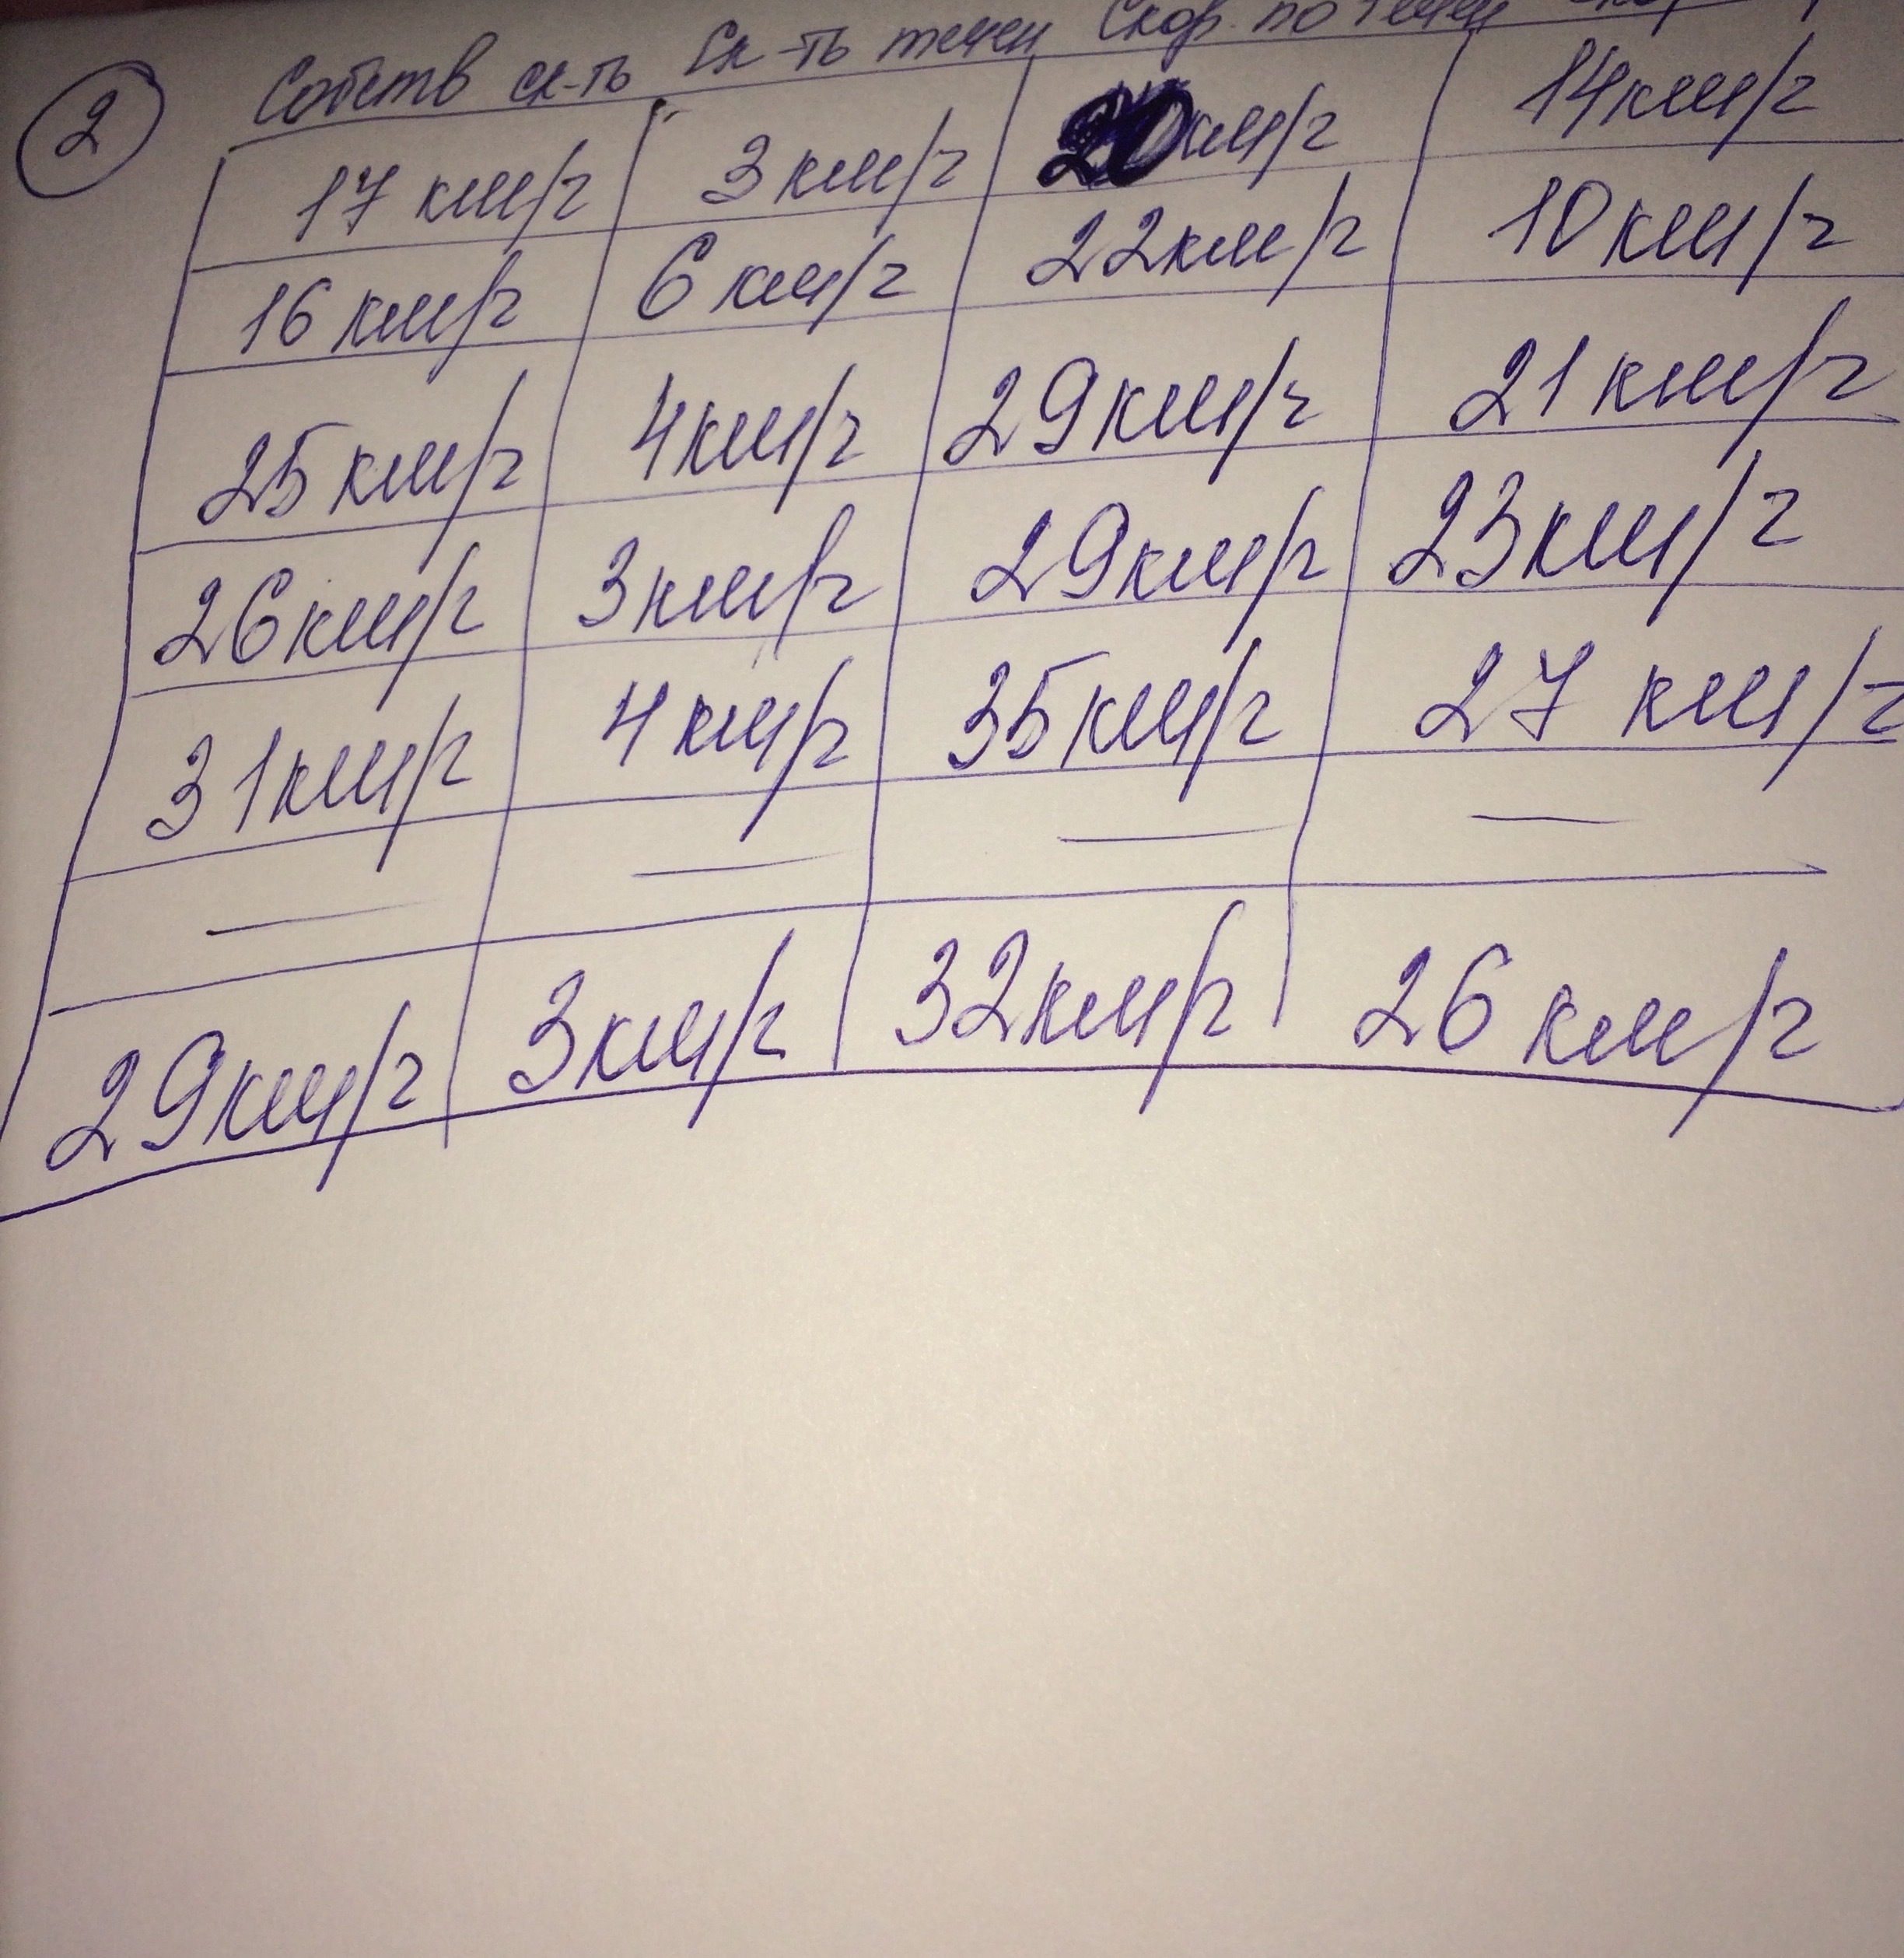 2 Собств ск-ть Ск-ть течен Скор. по течен
17 км/ч 3 км/ч 20км/ч 14км/ч
16 км/ч 6 км/ч 22км/ч 10км/ч
25 км/ч 4км/ч 29км/ч 21 км/ч
26км/ч 3км/ч 29км/ч 23км/ч
31км/ч 4 км/ч 35км/ч 27 км/ч
— — — —
29км/ч 3км/ч 32км/ч 26 км/ч